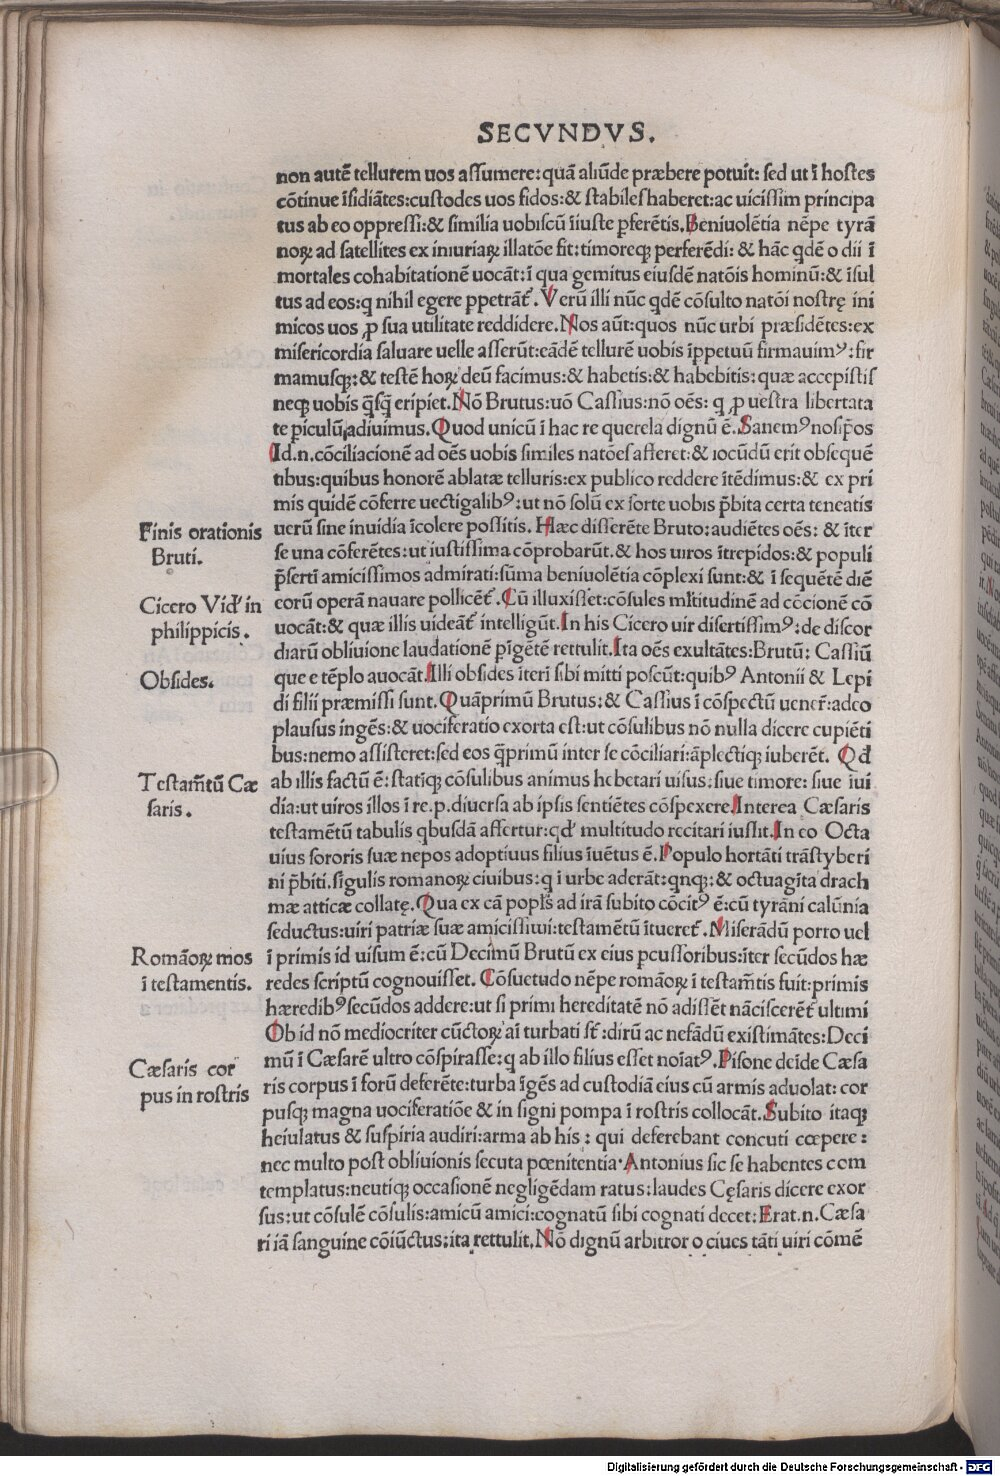 SECVNDVS.
non autē tellurem uos assumere: quā aliūde præbere potuit: sed ut ī hostes
cōtinue īsidiātes: custodes uos fidos: & stabiles haberet: ac uicissim principa
tus ab eo oppressi: & similia uobiscū īiuste pferētis. Beniuolētia nēpe tyrā
noꝝ ad satellites ex iniuriaꝝ illatōe fit: timoreqꝫ perferēdi: & hāc qdē o dii ī
mortales cohabitationē uocāt: ī qua gemitus eiusdē natōis hominū: & īsul
tus ad eos: q nihil egere ppetrāt. Verū illi nūc qdē cōsulto natōi nostrę ini
micos uos ꝓ sua utilitate reddidere. Nos aūt: quos nūc urbi præsidētes: ex
misericordia saluare uelle asserūt: eādē tellurē uobis īppetuū firmauimꝰ: fir
mamusqꝫ: & testē hoꝝ deū facimus: & habetis: & habebitis: quæ accepistis
neqꝫ uobis q̄sq̄ eripiet. Nō Brutus: uō Cassius: nō oēs: q ꝓ uestra libertata
te piculū adiuimus. Quod unicū ī hac re querela dignū ē. Sanemꝰ nosip̄os
Id.n.cōciliacionē ad oēs uobis similes natōes afferet: & iocūdū erit obsequē
tibus: quibus honorē ablatæ telluris: ex publico reddere ītēdimus: & ex pri
mis quidē cōferre uectigalibꝰ: ut nō solū ex sorte uobis p̄bita certa teneatis
uerū sine inuidia īcolere possitis. Hæc disserēte Bruto: audiētes oēs: & īter
Finis orationis
Bruti.
se una cōferētes: ut iustissima cōprobarūt. & hos uiros ītrepidos: & populi
p̄sertī amicissimos admirati: sūma beniuolētia cōplexi sunt: & ī sequētē diē
corū operā nauare pollicēt. Cū illuxisset: cōsules mltitudinē ad cōcionē cō
Cicero Vid' in
philippicis.
uocāt: & quæ illis uideāt intelligūt. In his Cicero uir disertissimꝰ: de discor
diarū obliuione laudationē pīgētē rettulit. Ita oēs exultātes: Brutū: Cassiū
que e tēplo auocāt. Illi obsides īteri sibi mitti poscūt: quibꝰ Antonii & Lepi
Obsides.
di filii præmissi sunt. Quāprimū Brutus: & Cassius ī cōspectū uener̄: adeo
plausus ingēs: & uociferatio exorta est: ut cōsulibus nō nulla dicere cupiēti
bus: nemo assisteret: sed eos q̄primū inter se cōciliari: āplectiqꝫ iuberēt. Qd
ab illis factū ē: statiqꝫ cōsulibus animus hebetari uisus: siue timore: siue īui
Testam̄tū Cæ
saris.
dia: ut uiros illos ī re.p.diuersa ab ipsis sentiētes cōspexere. Interea Cæsaris
testamētū tabulis qbusdā affertur: qd' multitudo recitari iussit. In eo Octa
uius sororis suæ nepos adoptiuus filius īuētus ē. Populo hortāti trāstyberi
ni p̄biti. sīgulis romanoꝝ ciuibus: q ī urbe aderāt: qnqꝫ: & octuagīta drach
mæ atticæ collatę. Qua ex cā popl̄s ad irā subito cōcitꝰ ē: cū tyrāni calūnia
seductus: uiri patriæ suæ amicissiwi: testamētū ītueret. Miserādū porro uel
ī primis id uisum ē: cū Decimū Brutū ex eius pcussoribus: īter secūdos hæ
Romāoꝝ mos
ī testamentis.
redes scriptū cognouisset. Cōsuetudo nēpe romāoꝝ ī testam̄tis fuit: primis
hæredibꝰ secūdos addere: ut si primi hereditatē nō adissēt nāciscerēt ultimi
Ob id nō mediocriter cūctoꝝ aī turbati st̄: dirū ac nefādū existimātes: Deci
mū ī Cæsarē ultro cōspirasse: q ab illo filius esset noīatꝰ. Pisone deīde Cæsa
Cæsaris cor
pus in rostris
ris corpus ī forū deferēte: turba īgēs ad custodiā eius cū armis aduolat: cor
pusqꝫ magna uociferatiōe & in signi pompa ī rostris collocāt. Subito itaqꝫ
heiulatus & suspiria audiri: arma ab his: qui deferebant concuti cœpere:
nec multo post obliuionis secuta pœnitentia. Antonius sic se habentes com
templatus: neutiqꝫ occasionē negligēdam ratus: laudes Cęsaris dicere exor
sus: ut cōsulē cōsulis: amicū amici: cognatū sibi cognati decet: Erat.n.Cæsa
ri iā sanguine cōiūctus: ita rettulit. Nō dignū arbitror o ciues tāti uiri cōmē
Digitalisierung gefördert durch die Deutsche Forschungsgemeinschaft - DFG